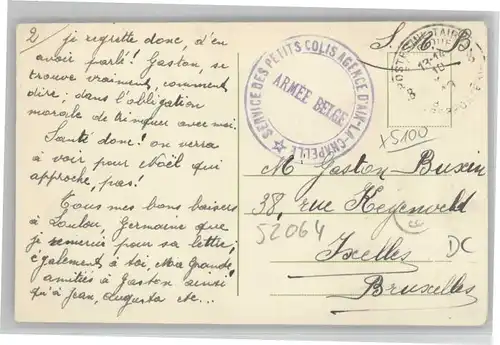 2/ je regrette donc, d'en
avoir parlé! Gaston, se
trouve vraiment, comment
dire; dans l'obligation
morale de trinquer avec moi.
Santé donc! on verra
à voir pour Noël qui
approche, pas!
Tous mes bons baisers
à Loulou, Germaine que
je remercie pour sa lettre,
également à toi, Ma Grande
amitiés à Gaston ainsi
qu'à Jean, Augusta etc...
S. M. B
SERVICE DES PETITS COLIS AGENCE D'AIX-LA-CHAPELLE
ARMÉE BELGE
13-14
10
8
x5100
Mr Gaston Buxin
38, rue Keyenveld
52064
Ixelles
DC
Bruxelles